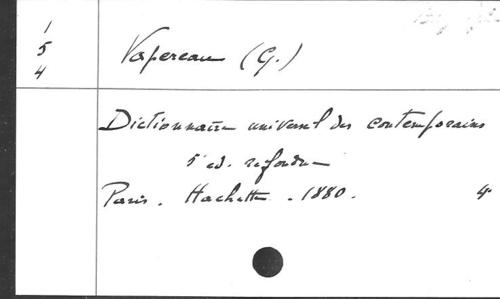 1
5
4
Vapereau (G.)
Dictionnaire universel des contemporains
5e ed. refondue
Paris. Hachette. 1880. 4°